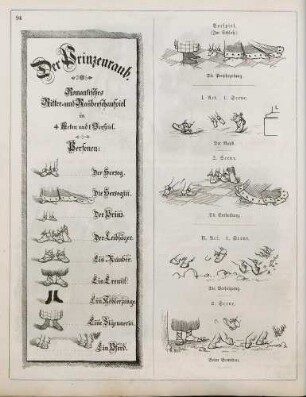 94
Der Prinzenraub.
Romantisches
Ritter- und Räuberschauspiel
in
4 Akten und 1 Vorspiel.
Personen:
Der Herzog.
Die Herzogin.
Der Prinz.
Der Leibjäger.
Ein Räuber.
Ein Eremit.
Ein Köhlerjunge.
Eine Zigeunerin.
Ein Pferd.
Vorspiel.
I. Act. 1. Scene.
Der Raub.
2. Scene.
Die Entdeckung.
II. Act. 1. Scene.
Die Verfolgung.
2. Scene.